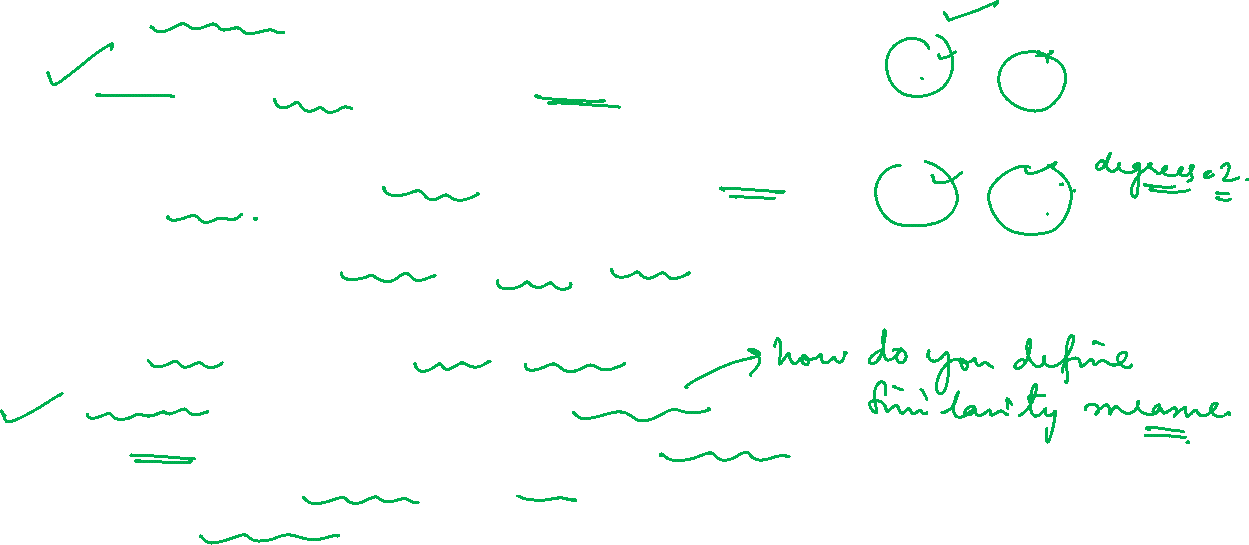 degrees = 2.
how do you define
similarity measure.